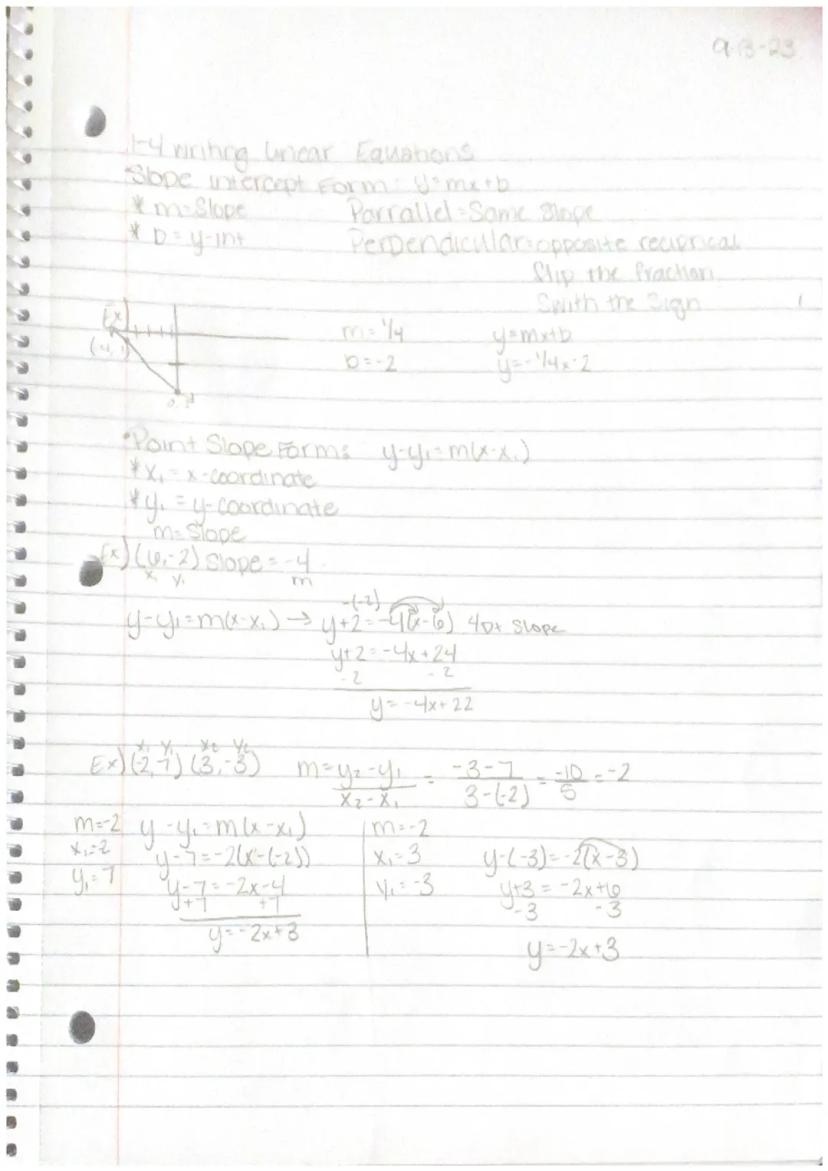 9-13-23
1-4 writing Linear Equations
Slope intercept Form: y=mx+b
* m=Slope Parrallel=Same Slope
* b=y-int Perpendicular=opposite reciprical
Slip the fraction
Swith the Sign
Ex)
m=1/4 y=mx+b
b=-2 y=-1/4x-2
•Point Slope Form: y-y₁=m(x-x₁)
*x₁=x-coordinate
*y₁=y-coordinate
m=Slope
Ex) (6,-2) Slope=-4
x₁ y₁ m
-(-2)
y-y₁=m(x-x₁) → y+2=-4(x-6) Slope
y+2=-4x+24
-2 -2
y=-4x+22
x₁ y₁ x₂ y₂
Ex) (-2,7) (3,-3) m=y₂-y₁/x₂-x₁ = -3-7/3-(-2) = -10/5 = -2
m=-2 y-y₁=m(x-x₁) m=-2
x₁=-2 y-7=-2(x-(-2)) x₁=3 y-(-3)=-2(x-3)
y₁=7 y-7=-2x-4 y₁=-3 y+3=-2x+6
+7 +7 -3 -3
y=-2x+3 y=-2x+3